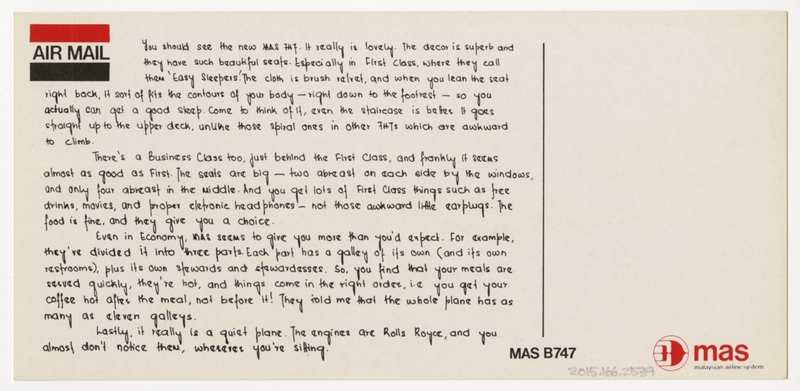 AIR MAIL
You should see the new MAS 747. It really is lovely. The decor is superb and
they have such beautiful seats. Especially in First Class, where they call
them 'Easy Sleepers'. The cloth is brush velvet, and when you lean the seat
right back, it sort of fits the contours of your body — right down to the footrest — so you
actually can get a good sleep. Come to think of it, even the staircase is better. It goes
straight up to the upper deck, unlike those spiral ones in other 747s which are awkward
to climb.
There's a Business Class too, just behind the First Class, and frankly it seems
almost as good as First. The seats are big — two abreast on each side by the windows,
and only four abreast in the middle. And you get lots of First Class things such as free
drinks, movies, and proper eletronic headphones — not those awkward little earplugs. The
food is fine, and they give you a choice.
Even in Economy, MAS seems to give you more than you'd expect. For example,
they've divided it into three parts. Each part has a galley of its own (and its own
restrooms), plus its own stewards and stewardesses. So, you find that your meals are
served quickly, they're hot, and things come in the right order, i.e you get your
coffee hot after the meal, not before it! They told me that the whole plane has as
many as eleven galleys.
Lastly, it really is a quiet plane. The engines are Rolls Royce, and you
almost don't notice them, wherever you're sitting.
MAS B747
mas
malaysian airline system
2015.166.2539